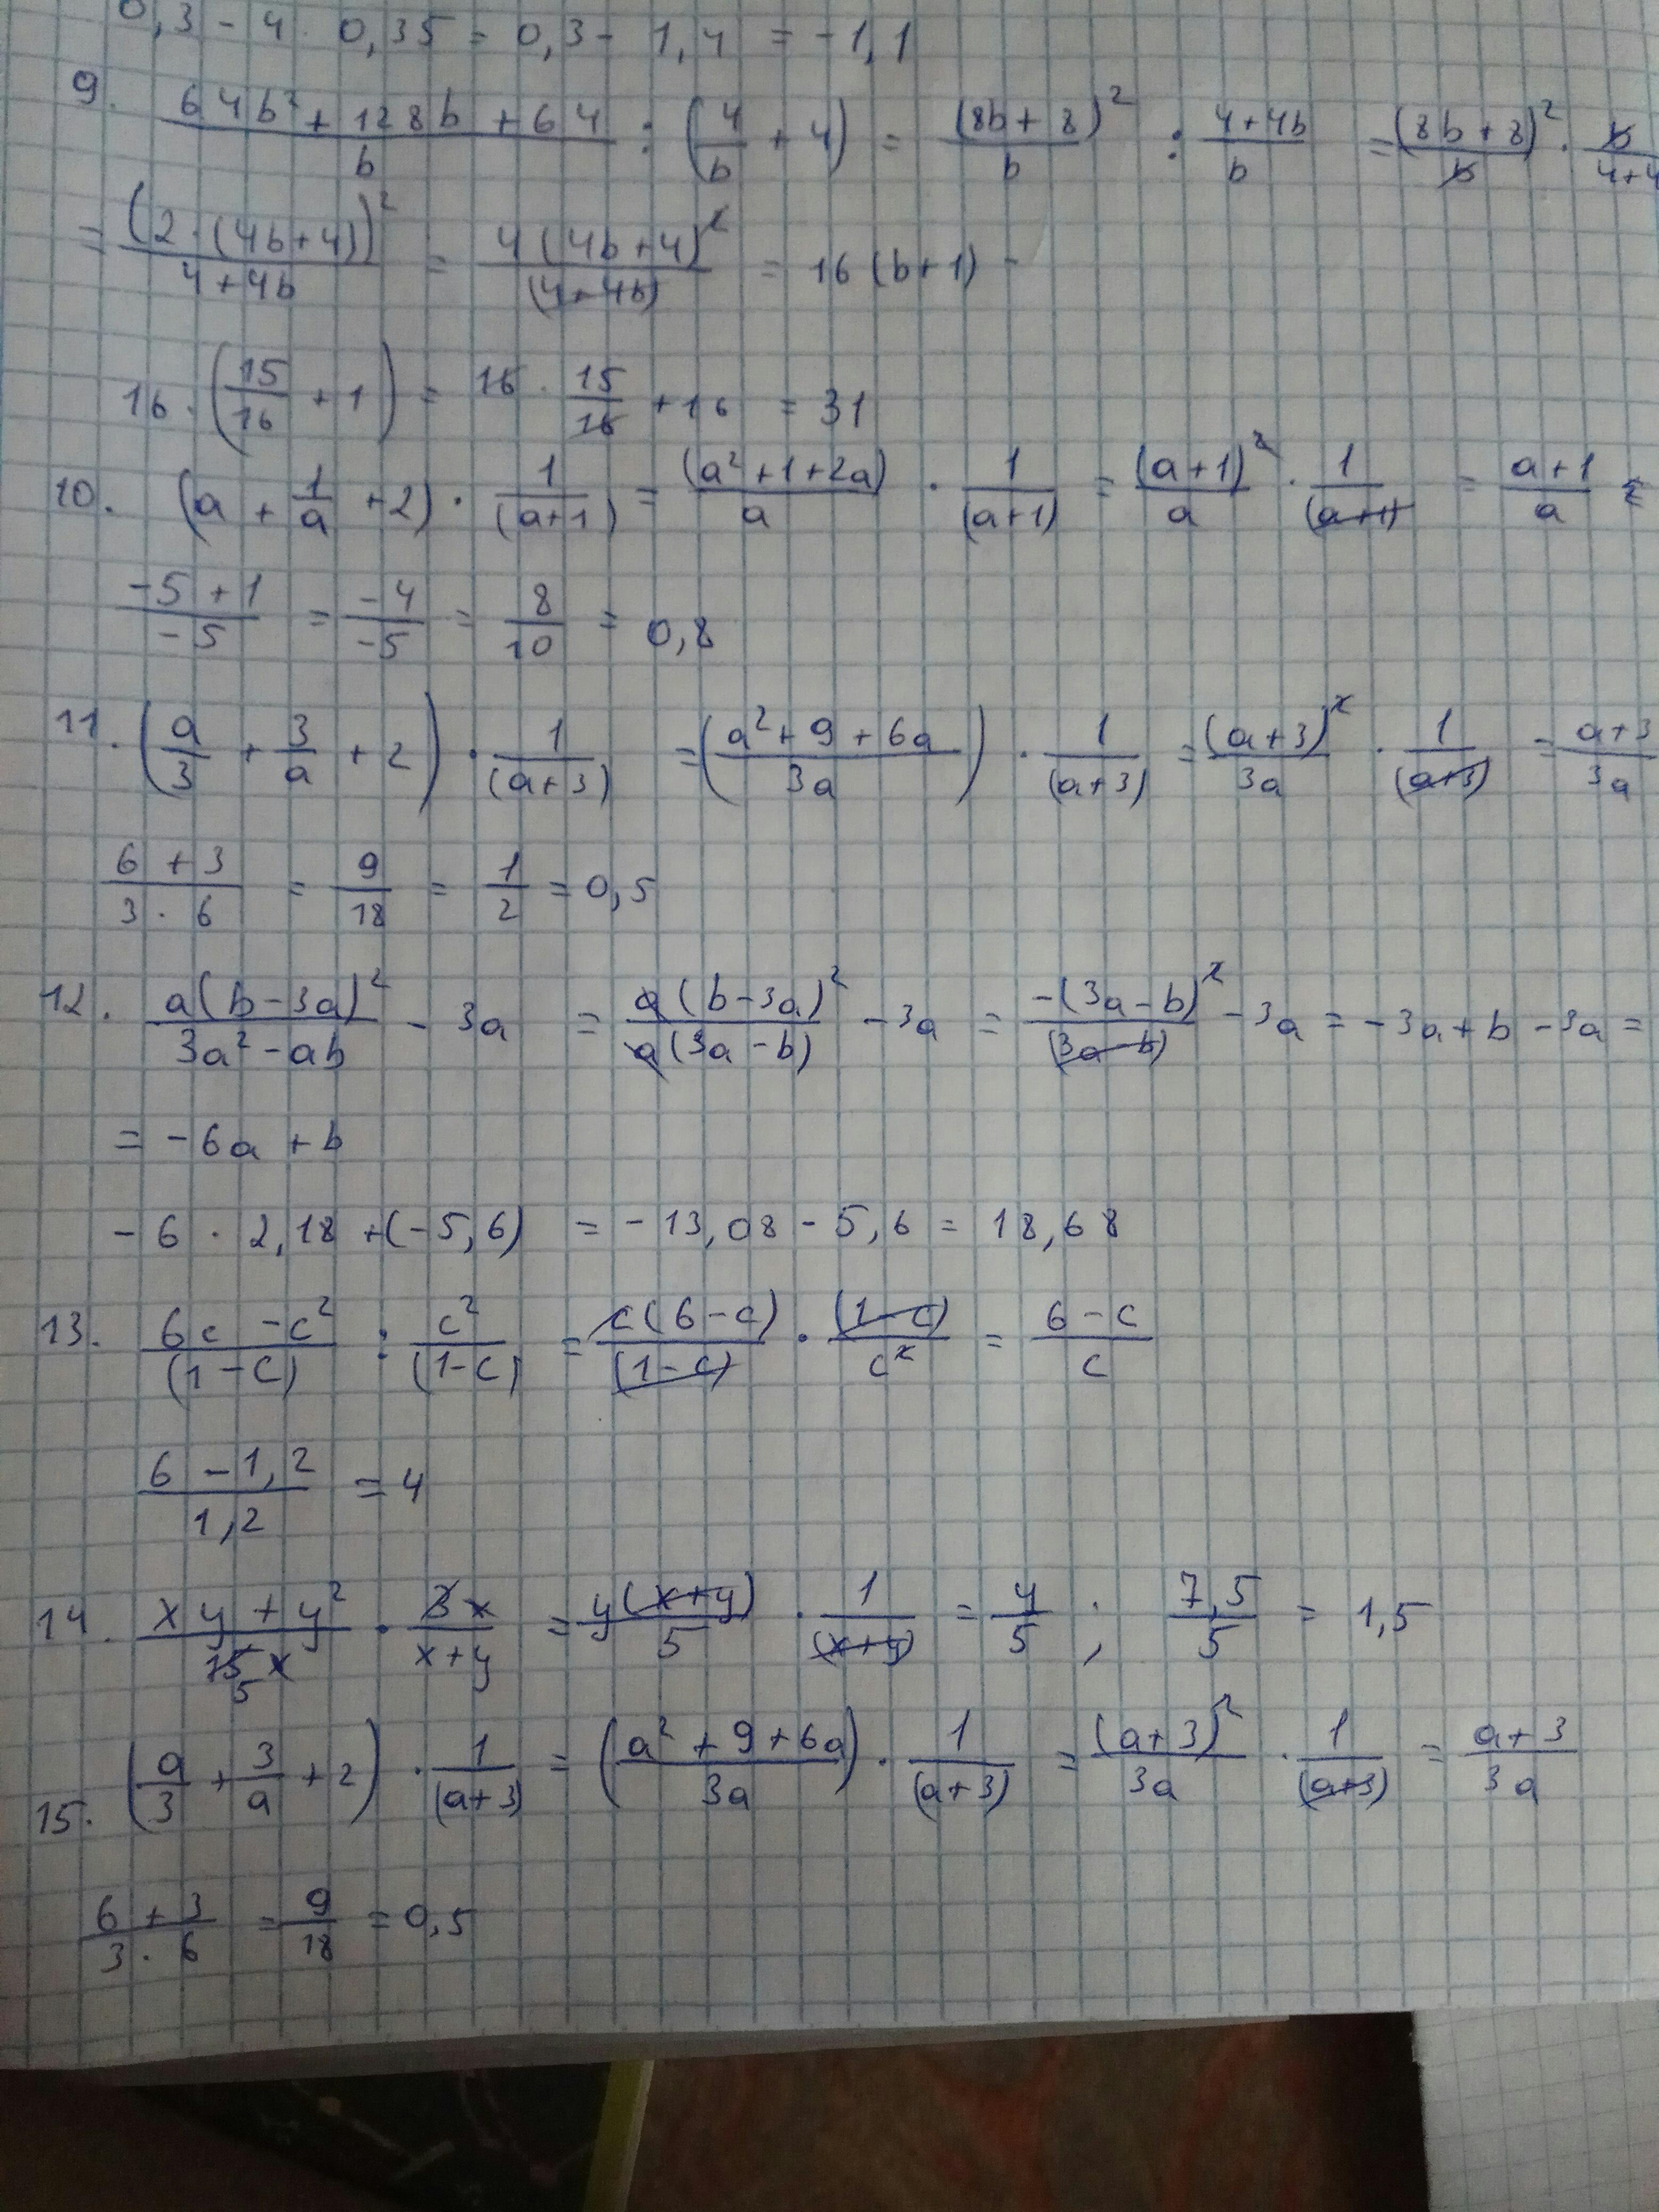 0,3 - 4 · 0,35 = 0,3 - 1,4 = -1,1
9. (64b² + 128b + 64)/b : (4/b + 4) = (8b + 8)²/b : (4 + 4b)/b = (8b + 8)²/b · b/(4+4
= (2 · (4b+4))²/(4+4b) = 4(4b+4)²/(4+4b) = 16(b+1) -
16 · (15/16 + 1) = 16 · 15/16 + 16 = 31
10. (a + 1/a + 2) · 1/(a+1) = (a² + 1 + 2a)/a · 1/(a+1) = (a+1)²/a · 1/(a+1) = (a+1)/a =
(-5 + 1)/(-5) = -4/-5 = 8/10 = 0,8
11. (a/3 + 3/a + 2) · 1/(a+3) = ((a² + 9 + 6a)/3a) · 1/(a+3) = (a+3)²/3a · 1/(a+3) = (a+3)/3a
(6 + 3)/(3 · 6) = 9/18 = 1/2 = 0,5
12. a(b-3a)²/(3a² - ab) - 3a = a(b-3a)²/a(3a-b) - 3a = -(3a-b)²/(3a-b) - 3a = -3a + b - 3a =
= -6a + b
-6 · 2,18 + (-5,6) = -13,08 - 5,6 = 18,68
13. (6c - c²)/(1-c) : c²/(1-c) = c(6-c)/(1-c) · (1-c)/c² = (6-c)/c
(6 - 1,2)/1,2 = 4
14. (xy + y²)/15x · 3x/(x+y) = y(x+y)/5 · 1/(x+y) = y/5 ; 7,5/5 = 1,5
15. (a/3 + 3/a + 2) · 1/(a+3) = ((a² + 9 + 6a)/3a) · 1/(a+3) = (a+3)²/3a · 1/(a+3) = (a+3)/3a
(6 + 3)/(3 · 6) = 9/18 = 0,5